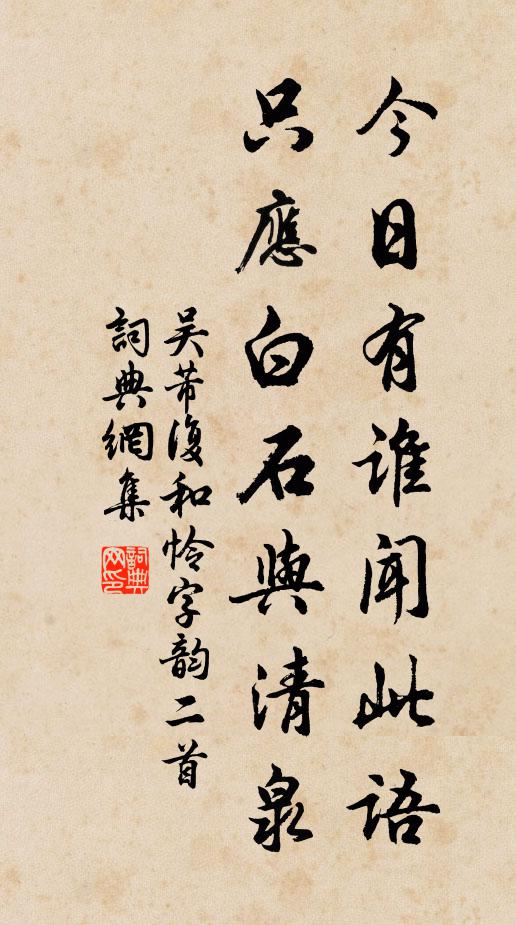 今日有谁闻此语
只應白石與清泉
吴芾復和怜字韵二首
詞典網集
詞典网印